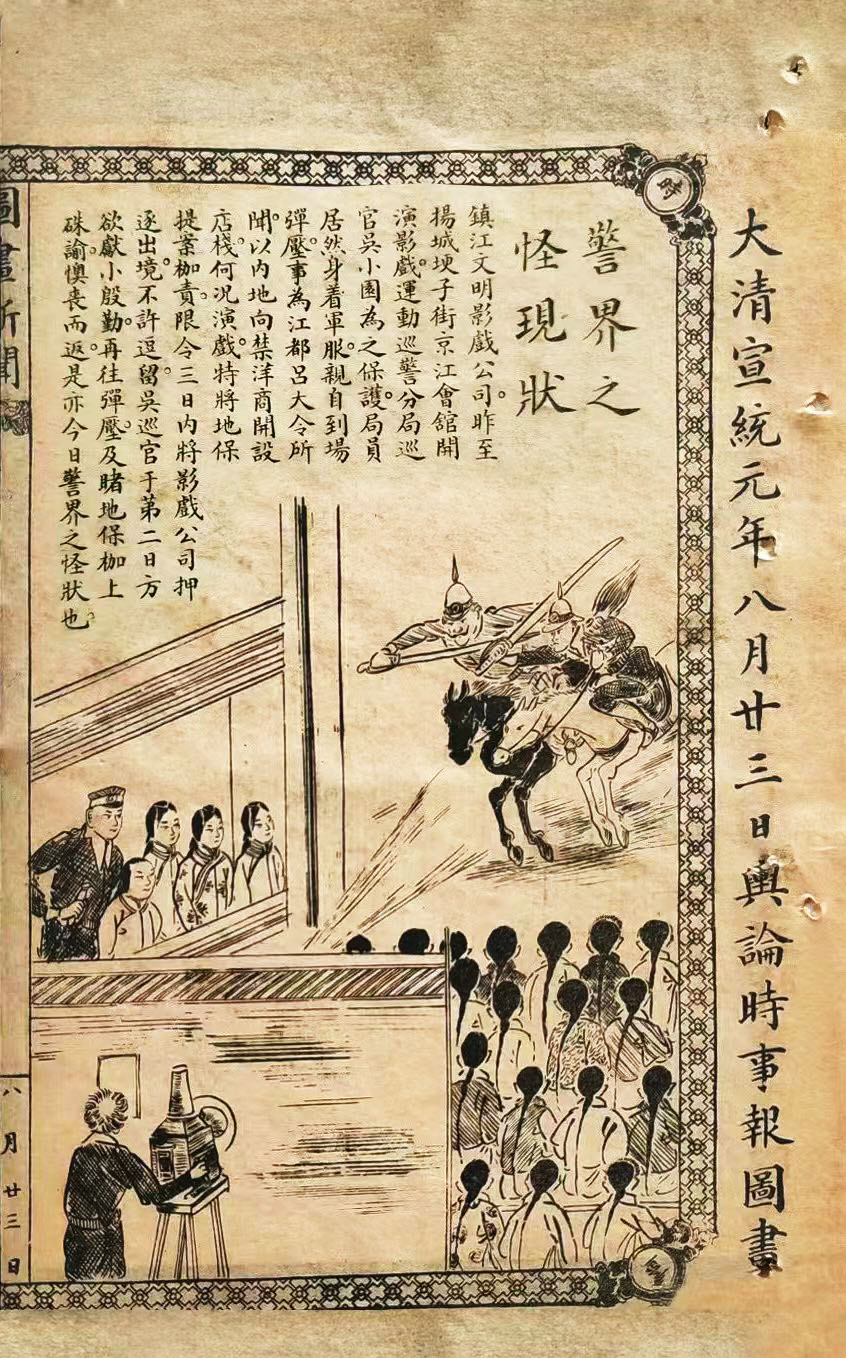 大清宣統元年八月廿三日輿論時事報圖畫
時
警界之
怪現狀
鎮江文明影戲公司。昨至
揚城埂子街京江會舘開
演影戲。運動巡警分局巡
官吳小園為之保護。局員
居然身着軍服。親自到場
彈壓。事為江都呂大令所
聞。以内地向禁洋商開設
店棧。何况演戲。特將地保
提案枷責。限令三日内將影戲公司押
逐出境。不許逗留。吳巡官于第二日方
欲獻小殷勤。再往彈壓。及睹地保枷上
硃諭。懊丧而返。是亦今日警界之怪狀也。
圖畫新聞
八月廿三日